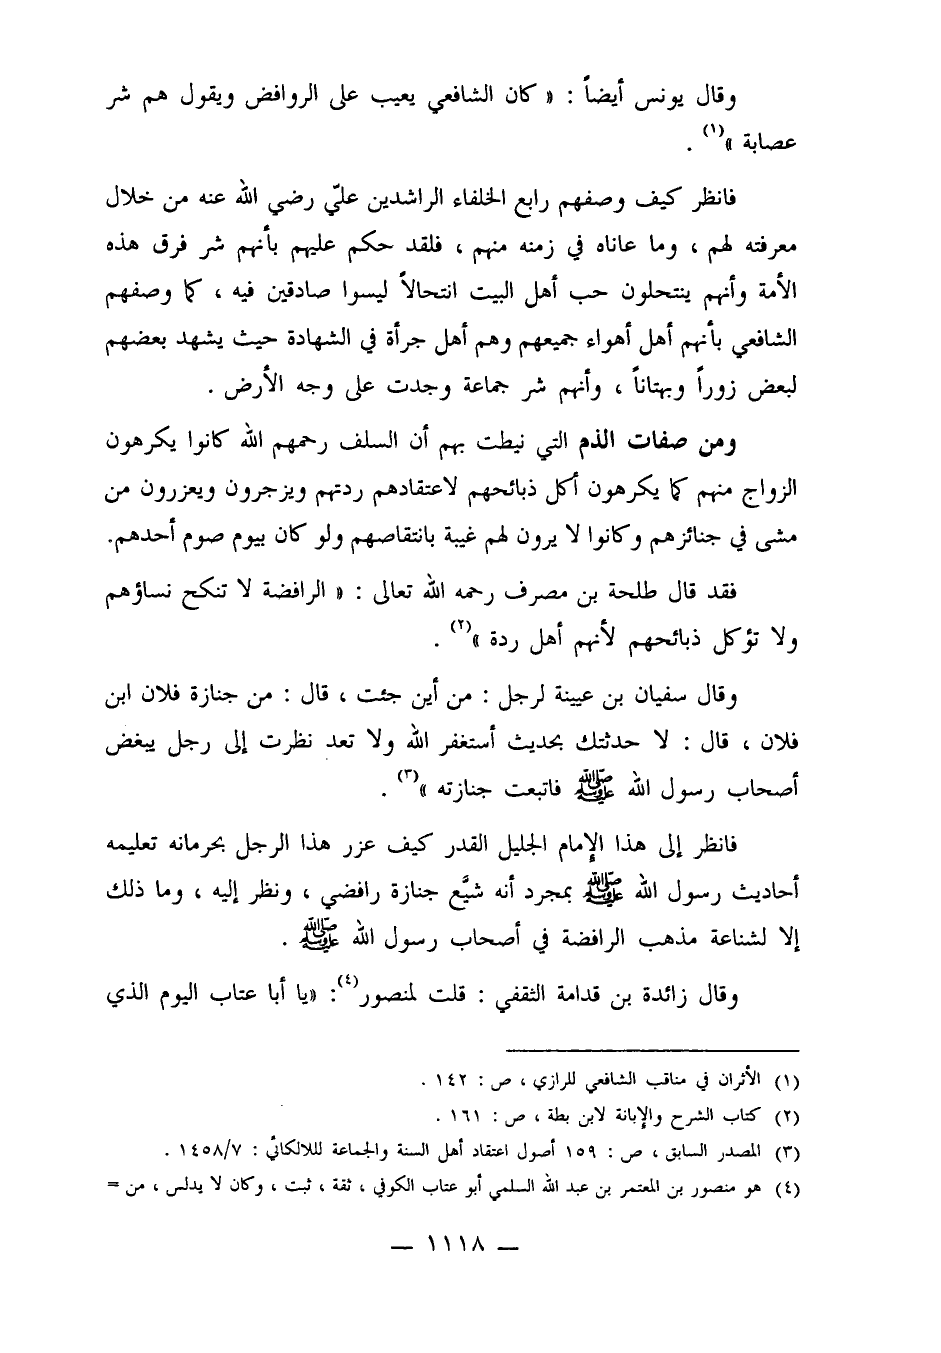 وقال يونس أيضاً : « كان الشافعي يعيب على الروافض ويقول هم شر
عصابة »(١) .
فانظر كيف وصفهم رابع الخلفاء الراشدين عليّ رضي الله عنه من خلال
معرفته لهم ، وما عاناه في زمنه منهم ، فلقد حكم عليهم بأنهم شر فرق هذه
الأمة وأنهم ينتحلون حب أهل البيت انتحالاً ليسوا صادقين فيه ، كما وصفهم
الشافعي بأنهم أهل أهواء جميعهم وهم أهل جرأة في الشهادة حيث يشهد بعضهم
لبعض زوراً وبهتاناً ، وأنهم شر جماعة وجدت على وجه الأرض .
ومن صفات الذم التي نيطت بهم أن السلف رحمهم الله كانوا يكرهون
الزواج منهم كما يكرهون أكل ذبائحهم لاعتقادهم ردتهم ويزجرون ويعزرون من
مشى في جنائزهم وكانوا لا يرون لهم غيبة بانتقاصهم ولو كان بيوم صوم أحدهم.
فقد قال طلحة بن مصرف رحمه الله تعالى : « الرافضة لا تنكح نساؤهم
ولا تؤكل ذبائحهم لأنهم أهل ردة »(٢) .
وقال سفيان بن عيينة لرجل : من أين جئت ، قال : من جنازة فلان ابن
فلان ، قال : لا حدثتك بحديث أستغفر الله ولا تعد نظرت إلى رجل يبغض
أصحاب رسول الله ﷺ فاتبعت جنازته »(٣) .
فانظر إلى هذا الإمام الجليل القدر كيف عزر هذا الرجل بحرمانه تعليمه
أحاديث رسول الله ﷺ بمجرد أنه شيَّع جنازة رافضي ، ونظر إليه ، وما ذلك
إلا لشناعة مذهب الرافضة في أصحاب رسول الله ﷺ .
وقال زائدة بن قدامة الثقفي : قلت لمنصور(٤): «يا أبا عتاب اليوم الذي
(١) الأثران في مناقب الشافعي للرازي ، ص : ١٤٢ .
(٢) كتاب الشرح والإبانة لابن بطة ، ص : ١٦١ .
(٣) المصدر السابق ، ص : ١٥٩ أصول اعتقاد أهل السنة والجماعة لللالكائي : ١٤٥٨/٧ .
(٤) هو منصور بن المعتمر بن عبد الله السلمي أبو عتاب الكوفي ، ثقة ، ثبت ، وكان لا يدلس ، من =
— ١١١٨ —